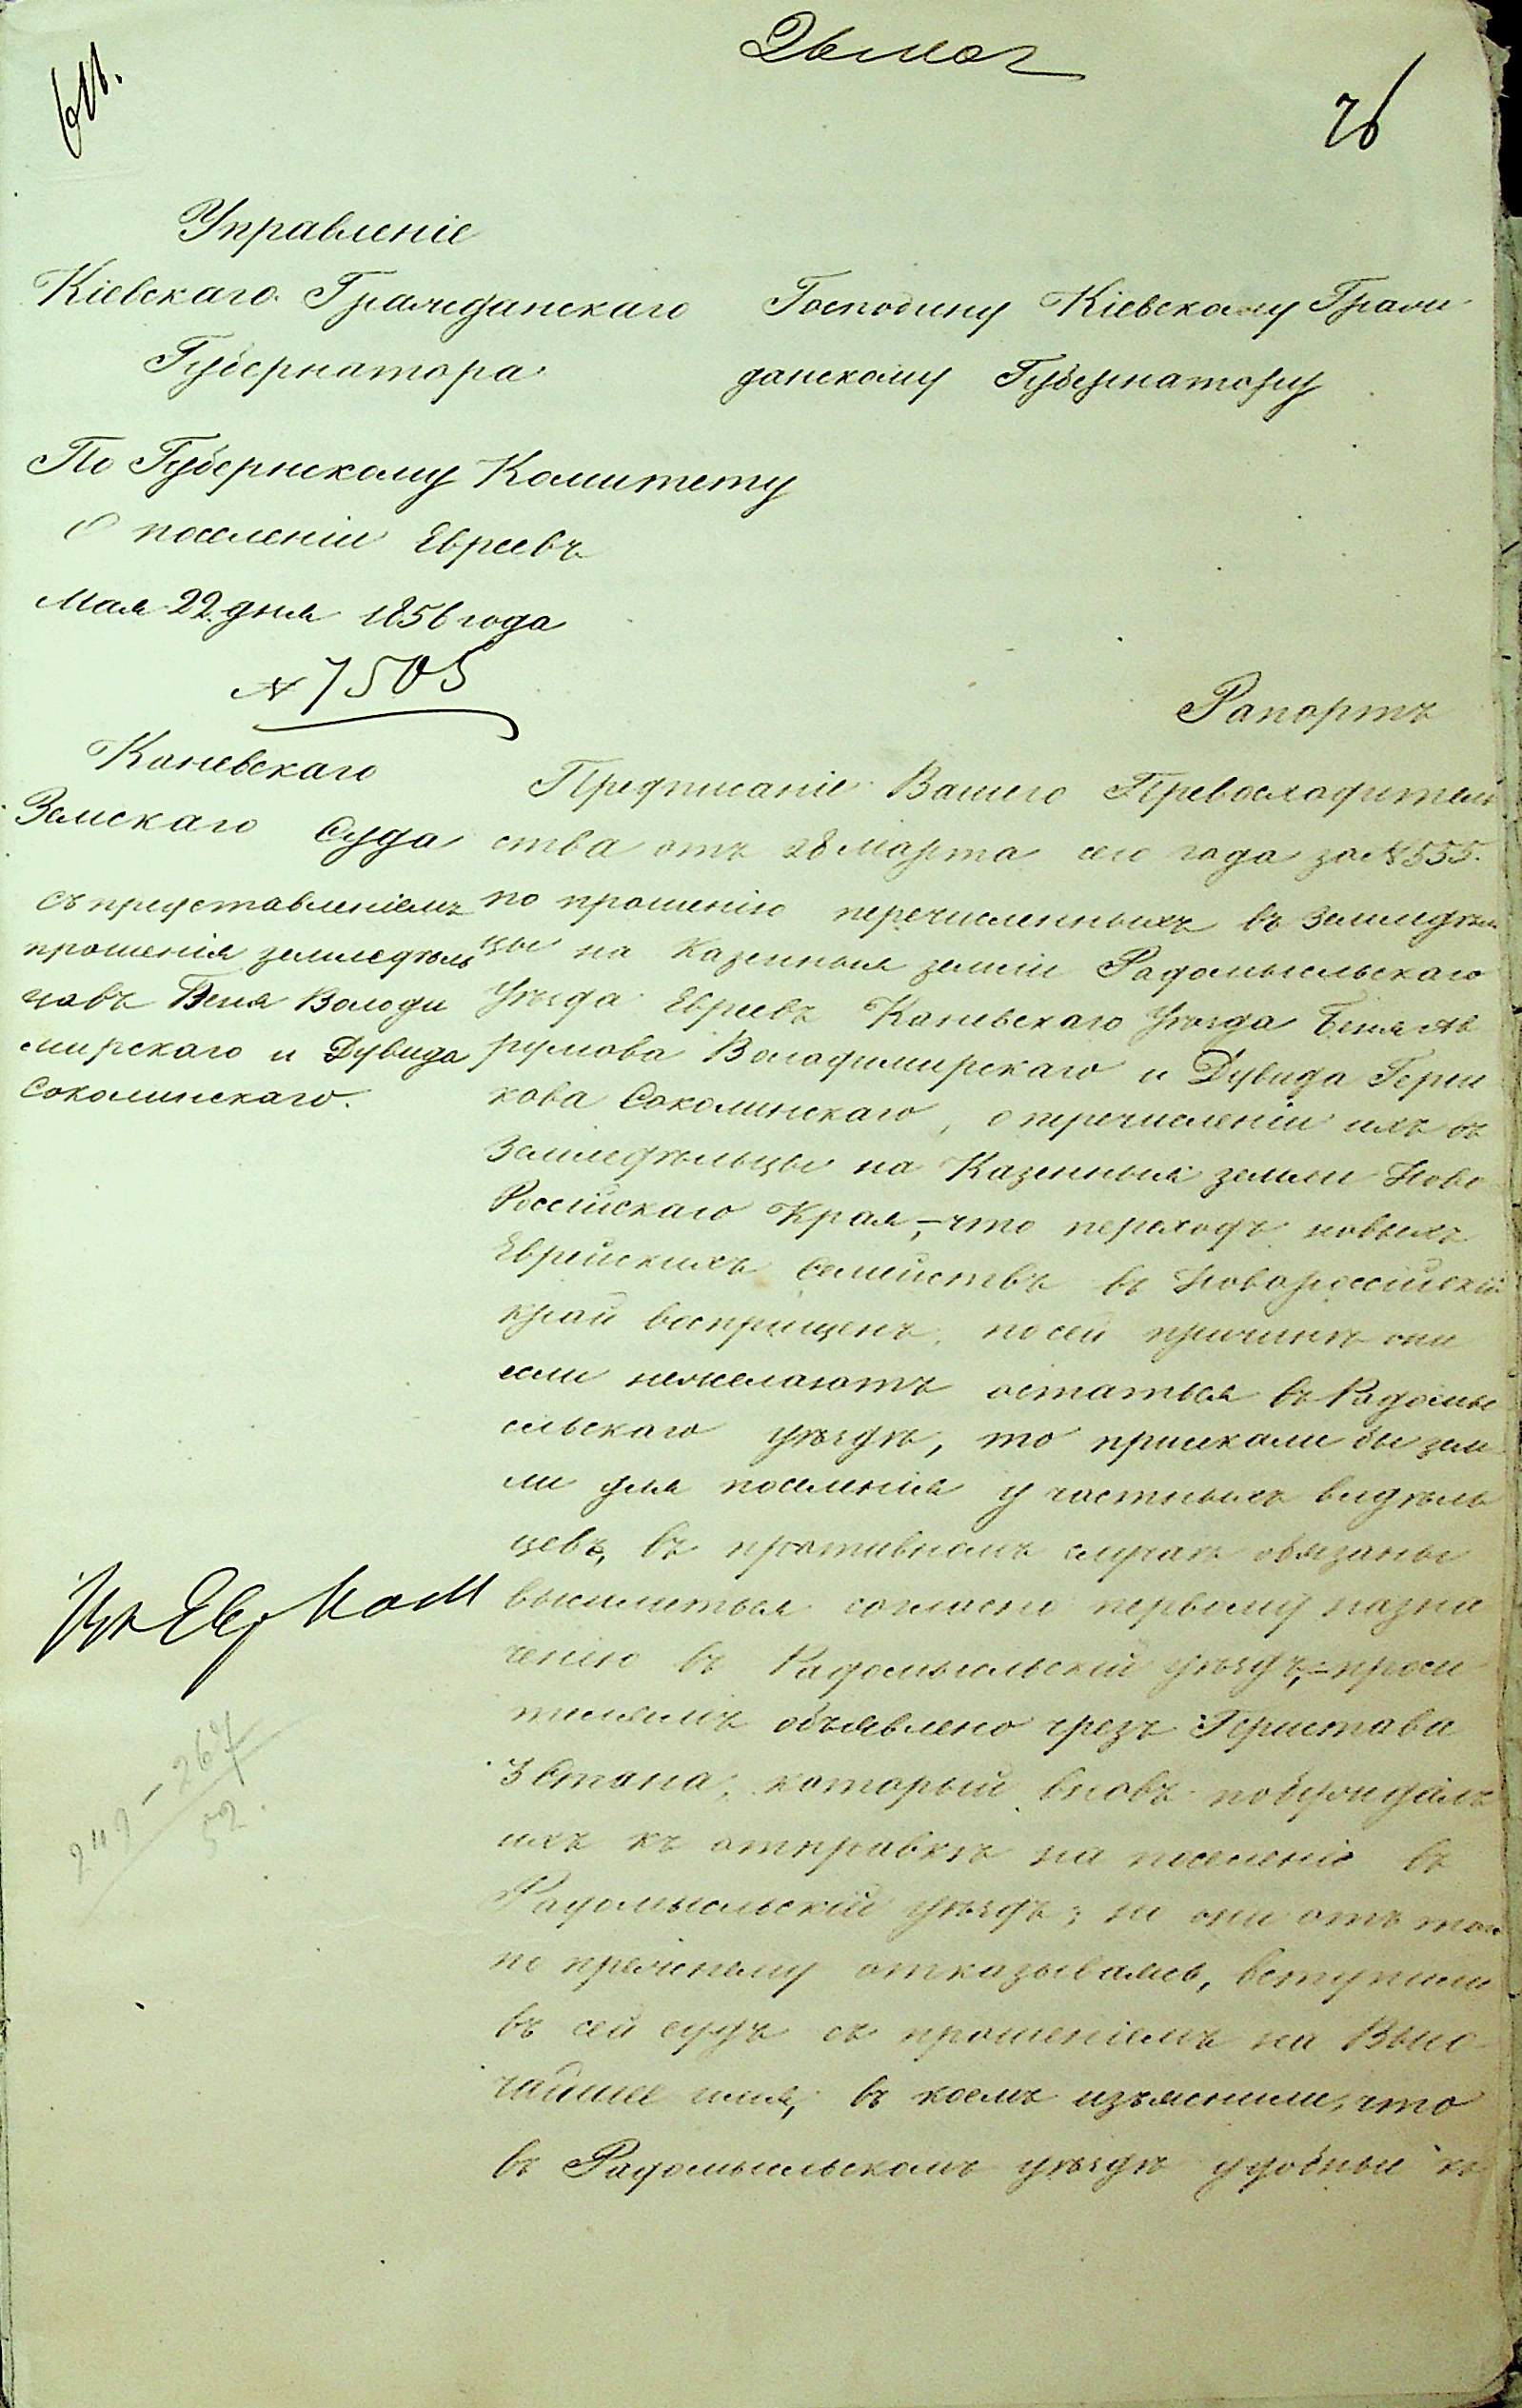 26 мая
76
Управленіе
Кіевскаго Гражданскаго
Губернатора
По Губернскому Комитету
О поселеніи Евреевъ
Мая 22 дня 1856 года
№ 7505
Каневскаго
Земскаго Суда
съ представленіемъ
прошенія земледѣль
цовъ Беня Володи
мирскаго и Дувида
Соколинскаго.
Господину Кіевскому Граж
данскому Губернатору
Рапортъ
Предписаніе Вашего Превосходитель
ства отъ 28 Марта сего года за № 555.
по прошенію перечисленныхъ въ Земледѣль
цы на Казенныя земли Радомысльскаго
Уѣзда Евреевъ Каневскаго Уѣзда Беня Ав
румова Володимирскаго и Дувида Герш
кова Соколинскаго, о перечисленіи ихъ въ
Земледѣльцы на Казенныя земли Ново
Россійскаго Края,– что переходъ новыхъ
Еврейскихъ Семействъ въ Новороссійскій
край воспрещенъ, по сей причинѣ они
если нежелаютъ остаться въ Радомы
сльскаго уѣздѣ, то пріискали бы зем
ли для поселенія у частныхъ владѣль
цевъ, въ противномъ случаѣ обязаны
выселиться согласно первому назна
ченію въ Радомысльскій уѣздъ,– проси
телямъ объявлено чрезъ Пристава
3 Стана, который вновь побуждалъ
ихъ къ отправкѣ на поселеніе въ
Радомысльскій уѣздъ; но они отъ того
по прежнему отказываясь, вступили
въ сей судъ съ прошеніемъ на Высо
чайшее имя, въ коемъ изъяснили, что
въ Радомысльскомъ уѣздѣ удобныи къ
249 – 267
52